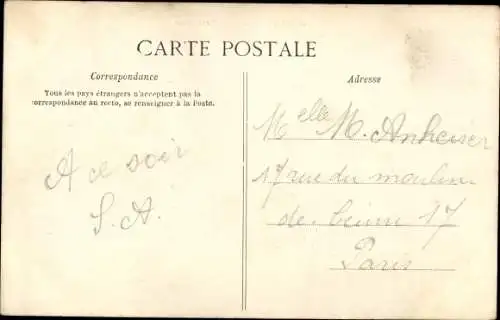 CARTE POSTALE
Correspondance
Tous les pays étrangers n'acceptent pas la
correspondance au recto, se renseigner à la Poste.
A ce soir
S. A.
Adresse
Melle M. Anheiser
17 rue du moulin
de 17
Paris